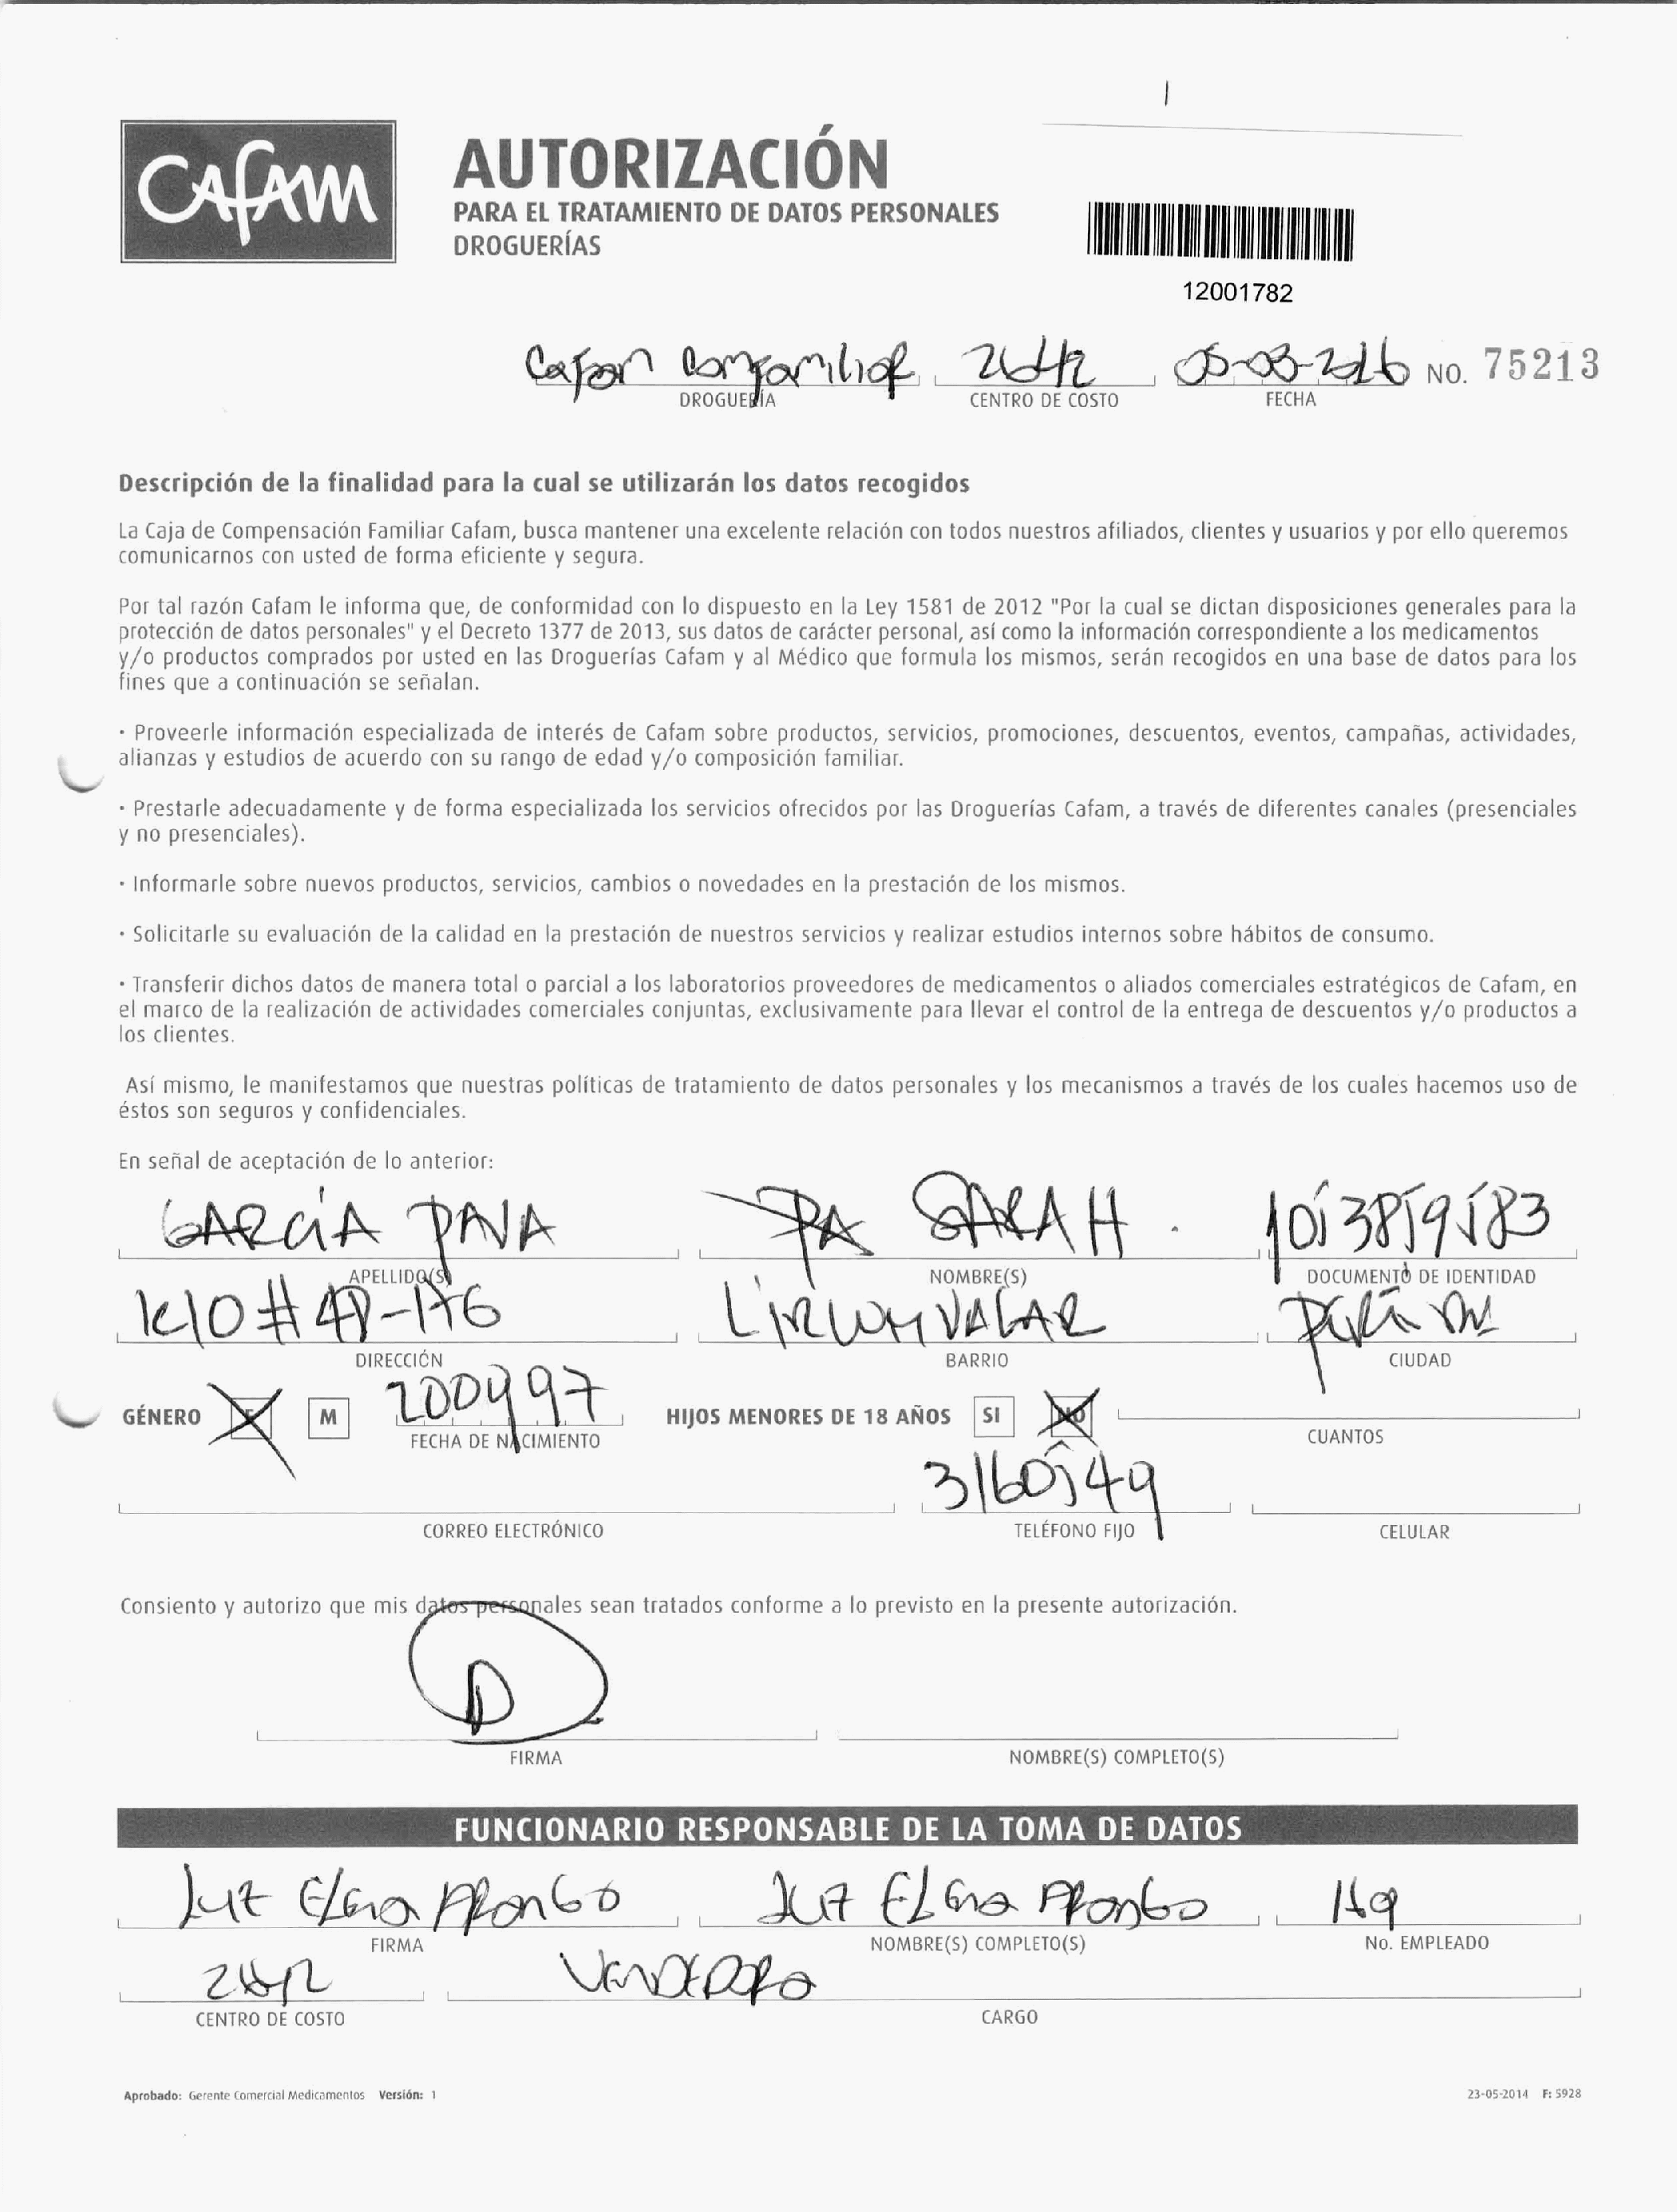 CAFAM
AUTORIZACIÓN
PARA EL TRATAMIENTO DE DATOS PERSONALES
DROGUERÍAS
12001782
Cafam Comfamiliar 2642 05-03-2016 NO. 75213
DROGUERÍA CENTRO DE COSTO FECHA
Descripción de la finalidad para la cual se utilizarán los datos recogidos
La Caja de Compensación Familiar Cafam, busca mantener una excelente relación con todos nuestros afiliados, clientes y usuarios y por ello queremos
comunicarnos con usted de forma eficiente y segura.
Por tal razón Cafam le informa que, de conformidad con lo dispuesto en la Ley 1581 de 2012 "Por la cual se dictan disposiciones generales para la
protección de datos personales" y el Decreto 1377 de 2013, sus datos de carácter personal, así como la información correspondiente a los medicamentos
y/o productos comprados por usted en las Droguerías Cafam y al Médico que formula los mismos, serán recogidos en una base de datos para los
fines que a continuación se señalan.
· Proveerle información especializada de interés de Cafam sobre productos, servicios, promociones, descuentos, eventos, campañas, actividades,
alianzas y estudios de acuerdo con su rango de edad y/o composición familiar.
· Prestarle adecuadamente y de forma especializada los servicios ofrecidos por las Droguerías Cafam, a través de diferentes canales (presenciales
y no presenciales).
· Informarle sobre nuevos productos, servicios, cambios o novedades en la prestación de los mismos.
· Solicitarle su evaluación de la calidad en la prestación de nuestros servicios y realizar estudios internos sobre hábitos de consumo.
· Transferir dichos datos de manera total o parcial a los laboratorios proveedores de medicamentos o aliados comerciales estratégicos de Cafam, en
el marco de la realización de actividades comerciales conjuntas, exclusivamente para llevar el control de la entrega de descuentos y/o productos a
los clientes.
Así mismo, le manifestamos que nuestras políticas de tratamiento de datos personales y los mecanismos a través de los cuales hacemos uso de
éstos son seguros y confidenciales.
En señal de aceptación de lo anterior:
GARCÍA SARAH
APELLIDO(S) NOMBRE(S) DOCUMENTO DE IDENTIDAD
DIRECCIÓN BARRIO CIUDAD
GÉNERO F M 200997 HIJOS MENORES DE 18 AÑOS SI NO
FECHA DE NACIMIENTO CUANTOS
CORREO ELECTRÓNICO TELÉFONO FIJO CELULAR
Consiento y autorizo que mis datos personales sean tratados conforme a lo previsto en la presente autorización.
FIRMA NOMBRE(S) COMPLETO(S)
FUNCIONARIO RESPONSABLE DE LA TOMA DE DATOS
Luz Elena Luz Elena
FIRMA NOMBRE(S) COMPLETO(S) No. EMPLEADO
CENTRO DE COSTO CARGO
Aprobado: Gerente Comercial Medicamentos Versión: 1 23-05-2014 F: 5928